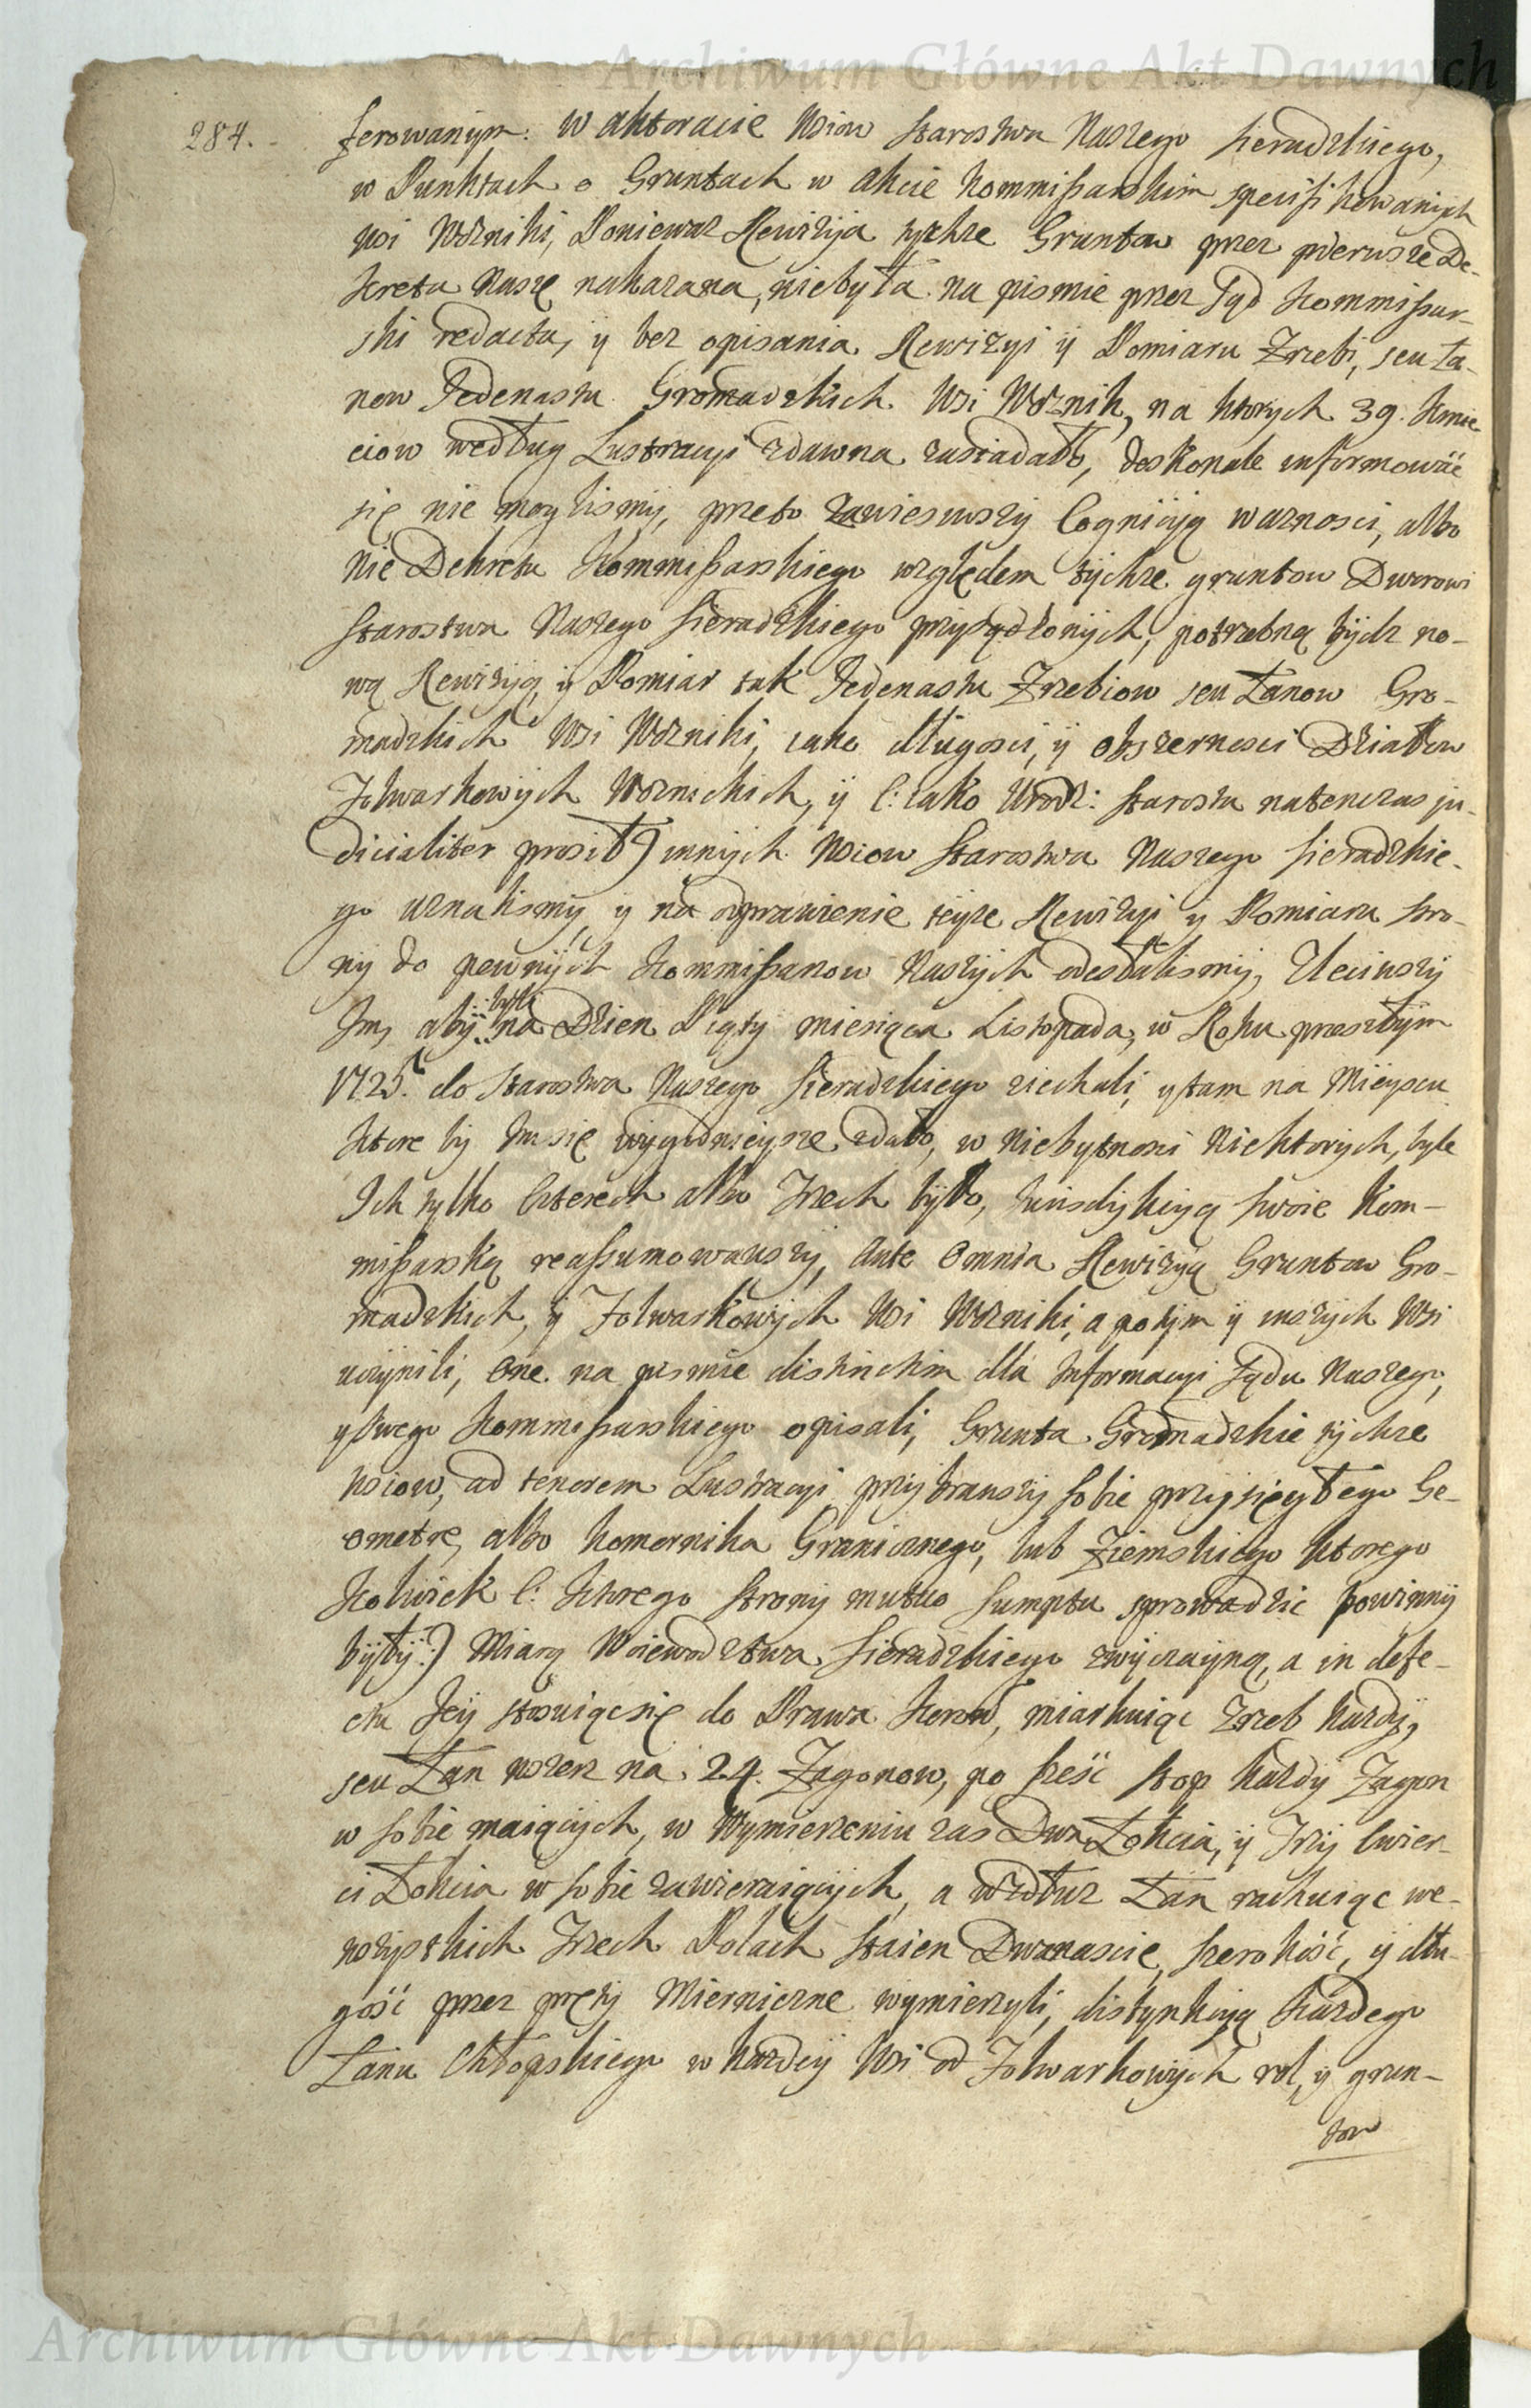 Archiwum Główne Akt Dawnych
284.
ferowanym: w aktoracie Wsiow Starostwa Naszego Sieradzkiego,
w Punktach o Gruntach w akcie Kommissarskim specifikowanych
wsi Wozniki, Poniewaz Rewizyia tychze Gruntow przez pierwsze De-
kreta Nasze nakazana, niebyła na pismie przez Sąd Kommissar-
ski redacta, y bez opisania Rewizyi y Pomiaru Zrzebi, seu Ła-
now Jedenastu Gromadzkich Wsi Woznik, na ktorych 39. Kmie
ciow według Lustracyi zdawna zasiadało, doskonale informować
się nie moglismy, przeto zawiesiwszy Cognicyą waznosci, albo
nie Dekretu Kommissarskiego względem tychze gruntow Dworowi
Starostwa Naszego Sieradzkiego przysądzonych, potrzebną bydz no-
wą Rewizyą y Pomiar tak Jedenastu Zrzebiow seu Łanow Gro-
madzkich Wsi Wozniki, iako długosci, y obszernosci Działow
Folwarkowych Woznickich, y (: iako Urodz: Starosta natenczas ju-
dicialiter prosił) innych Wsiow Starostwa Naszego Sieradzkie-
go uznalismy, y na odprawienie teyze Rewizyi y Pomiaru stro-
ny do pewnych Kommissarzow Naszych odesłalismy, Zleciwszy
Im, aby na Dzien Piąty miesiąca Listopada, w Roku przeszłym
1725. do Starostwa Naszego Sieradzkiego ziechali, y tam na Mieyscu
ktore by Im się wygodnieysze zdało, w niebytnosci niektorych, byle
Ich tylko Czterech albo Trzech było, Jurisdykcyą swoie Kom-
missarską reassumowawszy, Ante Omnia Rewizyą Gruntow Gro-
madzkich, y Folwarkowych Wsi Wozniki, a potym y inszych Wsi
uczynili, One na pismie distinctim dla Informacyi Sądu Naszego,
y swego Kommissarskiego opisali, Grunta Gromadzkie tychze
Wsiow, ad tenorem Lustracyi przybrawszy sobie przysięgłego Ge-
ometrę, albo Komornika Granicznego, lub Ziemskiego ktorego
kolwiek (: ktorego strony mutuo sumptu sprowadzic powinny
były:) Miarą Woiewodztwa Sieradzkiego zwyczayną, a in defe-
ctu Jey stosuiąc się do Prawa Koron, miarkuiąc Zrzeb kazdy,
seu Łan wszerz na 24. Zagonow, po sześć stop kazdy Zagon
w sobie maiących, w Wymierzeniu zas Dwa Łokcia, y Trzy Cwier-
ci Łokcia w sobie zawieraiących, a wzdłuz Łan rachuiąc we-
wszystkich Trzech Polach Staien Dwanascie, szerokość, y dłu-
gość przez pręty Miernicze wymierzyli, distynkcyą kazdego
Łanu Chłopskiego w kazdey Wsi od Folwarkowych rol, y grun-
tow
Archiwum Główne Akt Dawnych